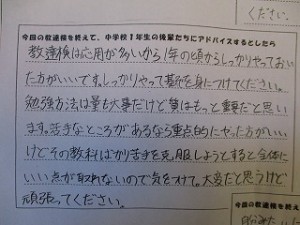 ください。
今回の教達検を終えて、中学校1年生の後輩たちにアドバイスするとしたら
教達検は応用が多いから1年の頃からしっかりやってお
いた方がいいです。しっかりやって基礎を身につけてください。
勉強方法は量も大事だけど質はもっと重要だと思い
ます。苦手なところがあるなら重点的にやった方がいい
けどその教科ばかり苦手を克服しようとすると全体に
いい点が取れないので気をつけて。大変だと思うけど
頑張ってください。
今回の教達検